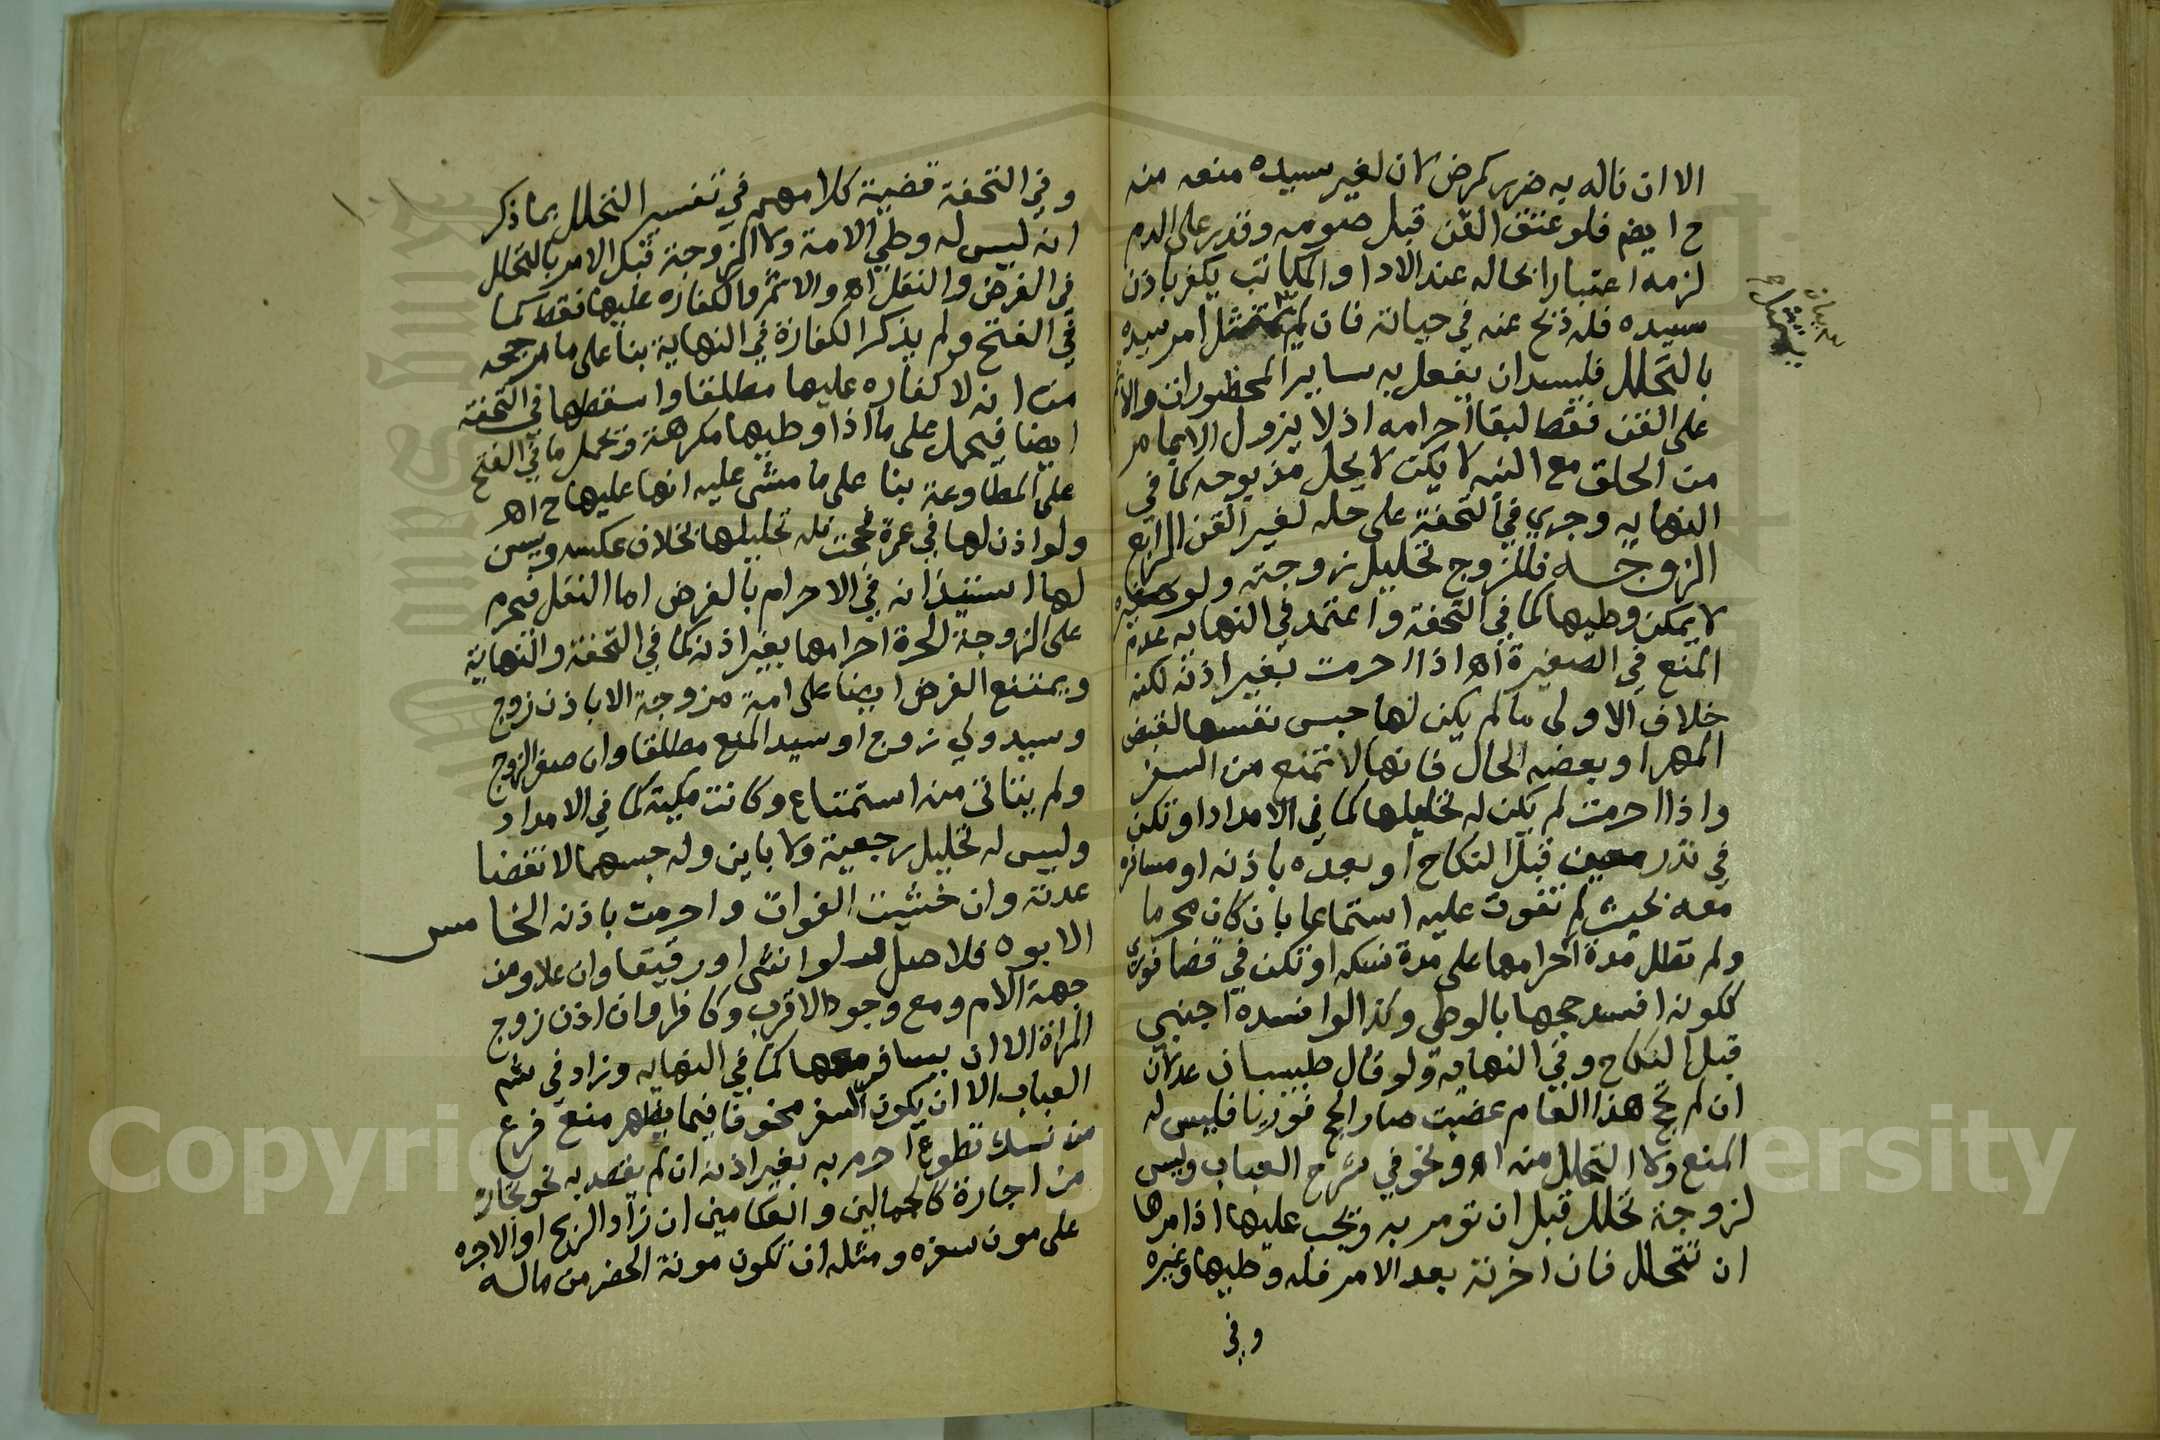 الا ان ناله به ضرر كمرض لان لغير سيده منعه منه
ح ايضا فلو عتق القن قبل صومه وقدر على الدم
لزمه اعتبارا بحاله عند الادا والمكاتب يكفر باذن
سيده فله ذبح عنه في حياته فان لم يمتثل امر سيده
بالتحلل فلسيد ان يفعل به ساير المحظورات والاثم
على القن فقط لبقا احرامه اذ لا يزول الا بما مر
من الحلق مع النيه لا يكن لا يحل مذبوحه كما في
النهايه وجري في التحفة على حله لغير القن الرابع
الزوجيه فللزوج تحليل زوجته ولو صغيره
لا يمكن وطيها كما في التحفة واعتمد في النهايه عدم
المنع في الصغيرة اهـ اذا احرمت بغير اذنه لكنه
خلاف الاولى ما لم يكن لها حبس نفسها لقبض
المهر او بعضه الحال فانها لا تمنع من السفر
واذا احرمت لم يكن له تحليلها كما في الامداد او تكن
في نذر معين قبل النكاح او بعده باذنه او مسافره
معه بحيث لم تفوت عليه استمتاعا بان كان محرما
ولم تطل مدة احرامها على مدة نسكه او تكن في قضا فوري
لكونه افسد حجها بالوطي وكذا لو افسده اجنبي
قبل النكاح وفي النهاية ولو قال طبيبان عدلان
ان لم تحج هذا العام عضبت صار الحج فوريا فليس له
المنع ولا التحلل منه اهـ ونحو في شرح العباب وليس
لزوجة تحلل قبل ان تومر به ويجب عليها اذا امرها
ان تتحلل فان اخرته بعد الامر فله وطيها وغيره
وفي
وفي التحفة قضية كلامهم في تفسير التحلل بما ذكر
انه ليس له وطي الامة ولا الزوجة قبل الامر بالتحلل
في الفرض والنفل اهـ والاثم والكفاره عليها فقط كما
في الفتح ولم يذكر الكفارة في النهاية بنا على ما رجحه
من انه لا كفاره عليها مطلقا واسقطها في التحفة
ايضا فيحمل على ما اذا وطيها مكرهة ويحمل ما في الفتح
على المطاوعة بنا على ما مشى عليه انها عليها ح اهـ
ولو اذن لها في عمرة فحجت فله تحليلها بخلاف عكسه ويسن
لها استيذانه في الاحرام بالفرض اما النفل فيحرم
على الزوجة الحرة احرامها بغير اذنه كما في التحفة والنهاية
ويمتنع الفرض ايضا على امة مزوجة الا باذن زوج
وسيد ولي زوج او سيد المنع مطلقا وان صغر الزوج
ولم يتاتى منه استمتاع وكانت مكية كما في الامداد
وليس له تحليل رجعية ولا باين وله حبسهما لانقضا
عدته وان خشيت الفوات واحرمت باذنه الخامس
الابوه فلاصل ولو انثى او رقيقا وان علا ومن
جهة الام ومع وجود الاقرب وكافرا وان اذن زوج
المراة الا ان يسافر معها كما في النهايه وزاد في شم
العباب الا ان يكون السفر مخوفا فيما يظهر منع فرع
من نسك تطوع احرم به بغير اذنه ان لم يقصد به نحو تجارة
من اجارة كالجمالين والعكامين ان زاد الربح او الاجره
على مون سفره ومثله ان تكون مونة الحضر من ماله